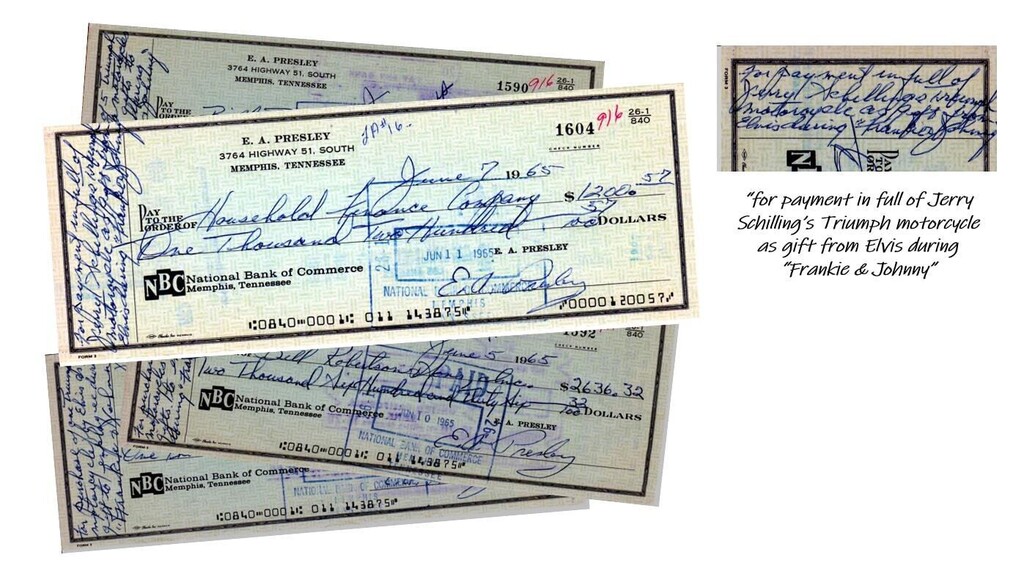 E. A. PRESLEY
3764 HIGHWAY 51, SOUTH
MEMPHIS, TENNESSEE
1590 916 26-1
840
PAY
TO THE
ORDER OF
E. A. PRESLEY
3764 HIGHWAY 51, SOUTH
MEMPHIS, TENNESSEE
1604 916 26-1
840
CHECK NUMBER
June 7 1965
PAY
TO THE
ORDER OF Household Finance Company $1200.57
One Thousand Two Hundred 57/00 DOLLARS
JUN 11 1965
E. A. PRESLEY
NBC National Bank of Commerce
Memphis, Tennessee
E A Presley
NATIONAL BANK OF COMMERCE
MEMPHIS
⑆0840⑉0001⑆ 011 143875⑈ ⑈0000120057⑈
FORM 3
for payment in full of
Jerry Schilling's triumph
motorcycle as gift from
Elvis during "Frankie & Johnny"
1592
840
June 5 1965
Bill Robertson & Sons Inc. $2636.32
Two Thousand Six Hundred and Thirty Six 32/00 DOLLARS
PAID
JUN 10 1965
NATIONAL BANK OF COMMERCE
E. A. PRESLEY
NBC National Bank of Commerce
Memphis, Tennessee
E A Presley
⑆0840⑉0001⑆ 011 143875⑈
NBC National Bank of Commerce
Memphis, Tennessee
NATIONAL BANK OF COMMERCE
⑆0840⑉0001⑆ 011 143875⑈
for payment in full of
Jerry Schilling's triumph
motorcycle as gift from
Elvis during "Frankie & Johnny"
"for payment in full of Jerry
Schilling's Triumph motorcycle
as gift from Elvis during
"Frankie & Johnny"